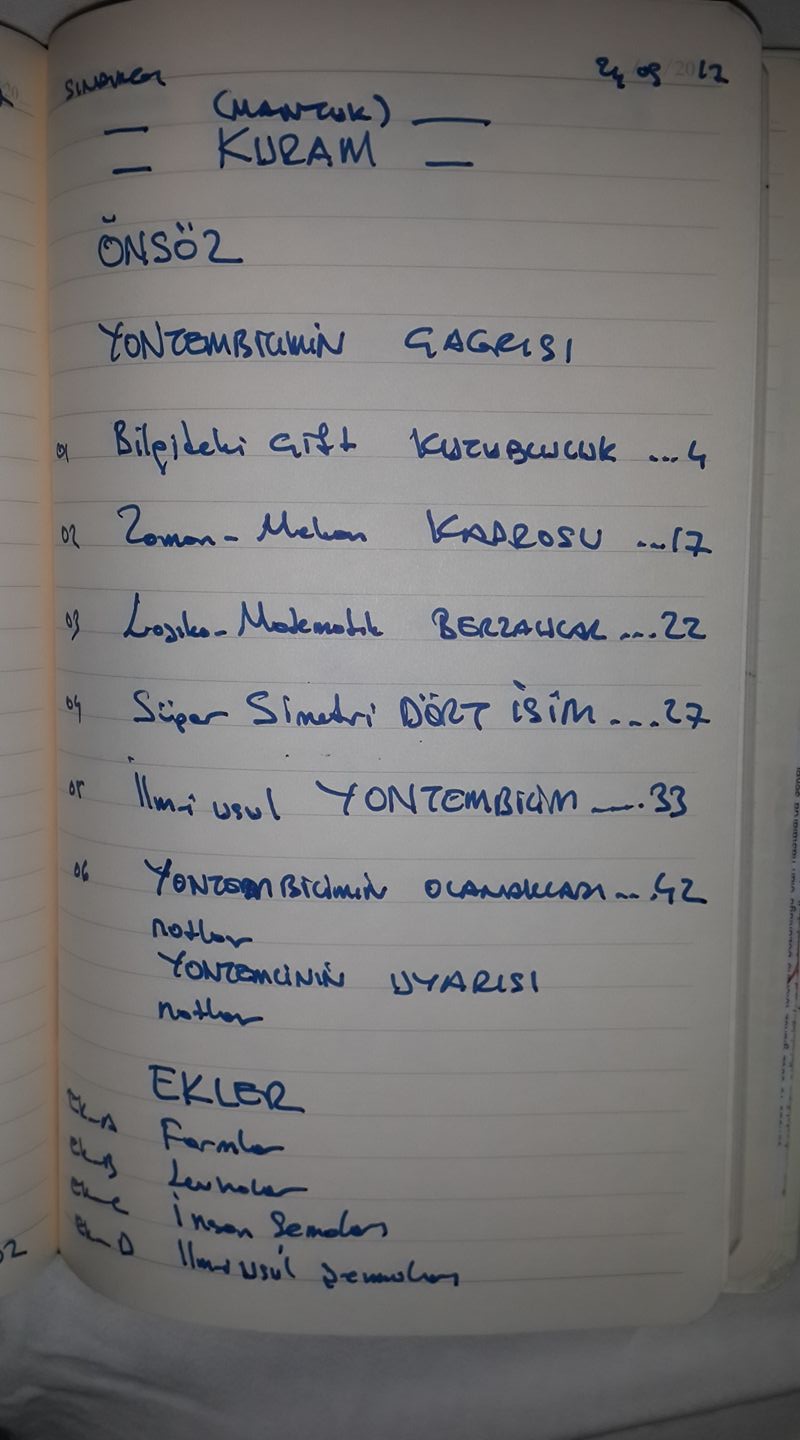 24 09 2012
(MANTUK)
KURAM
ÖNSÖZ
YONTEMBİLİMİN ÇAGRISI
01 Bilgideki Çift KUTUBLULUK ...4
02 Zaman-Mekan KADROSU ...17
03 Logiko-Matematik BERZAHLAR ....22
04 Süper Simetri DÖRT İSİM ....27
05 İlm-i usul YONTEMBİLİM ....33
06 YONTEMBİLİMİN OLANAKLARI ....42
notlar
YONTEMCİNİN UYARISI
notlar
EKLER
Ek-A Formlar
Ek-B Levhalar
Ek-C İnsan Şemaları
Ek-D İlm-i usul şemaları